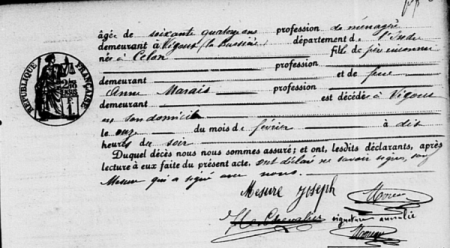 âgé de soixante quatorze ans profession de ménagère
demeurant à Vigoux (la Bussière) département de l'Indre
née à Celon fille de père inconnu
profession
demeurant et de feue
Anne Marais profession
demeurant est décédée à Vigoux
en son domicile
le onze du mois de février à dix
heures du soir
Duquel décès nous nous sommes assuré; et ont, lesdits déclarants, après
lecture à eux faite du présent acte, ont déclaré ne savoir signer, sauf
Mesure qui a signé avec nous.
Mesure Joseph
Chevalier signature annulée
RÉPUBLIQUE FRANÇAISE